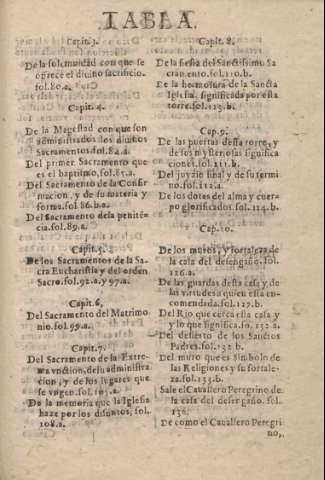 TABLA.
Capit. 3.
De la solemnidad con que se
ofrece el diuino sacrificio.
fol. 80. a.
Capit. 4.
De la Magestad con que son
administrados los diuinos
Sacramentos. fol. 84. a.
Del primer Sacramento que
es el baptismo, fol. 85. a.
Del Sacramento de la Confir
macion, y de su materia y
forma. fol. 86. b. a.
Del Sacramento de la penitē
cia. fol. 89. a.
Capit. 5.
De los Sacramentos de la Sa
cra Eucharistia y del orden
Sacro. fol. 92. a. y 97. a.
Capit. 6,
Del Sacramento del Matrimo
nio. fol. 99. a.
Capit. 7.
Del Sacramento de la Extre
ma vnction, de su administra
cion, y de los lugares que
se vngen. fol. 105. a.
De la memoria que la Iglesia
haze por los difuntos, fol.
108. a.
Capit. 8.
De la fiesta del Sanctissimo Sa
cramento. fol. 110. b.
De la hermosura de la Sancta
Iglesia, significada por esta
torre. fol. 113. b.
Cap. 9.
De las puertas desta torre, y
de sus mysteriosas significa
ciones. fol. 111. b.
Del juyzio final y de su termi
no. fol. 112. a.
De los dotes del alma y cuer
po glorificados. fol. 114. b.
Cap. 10.
De los muros, y fortaleza de
la casa del desengaño. fol.
126. a.
De las guardas desta casa y de
las virtudes a quien esta en
comendada. fol. 127. b.
Del Rio que cerca esta casa y
y lo que significa. fo. 132. a.
Del desierto de los Sanctos
Padres. fol. 132. b.
Del muro que es simbolo de
las Religiones y su fortale-
za. fol. 135. b.
Sale el Cavallero Peregrino de
la casa del desengaño. fol.
136.
De como el Cauallero Peregri
no,